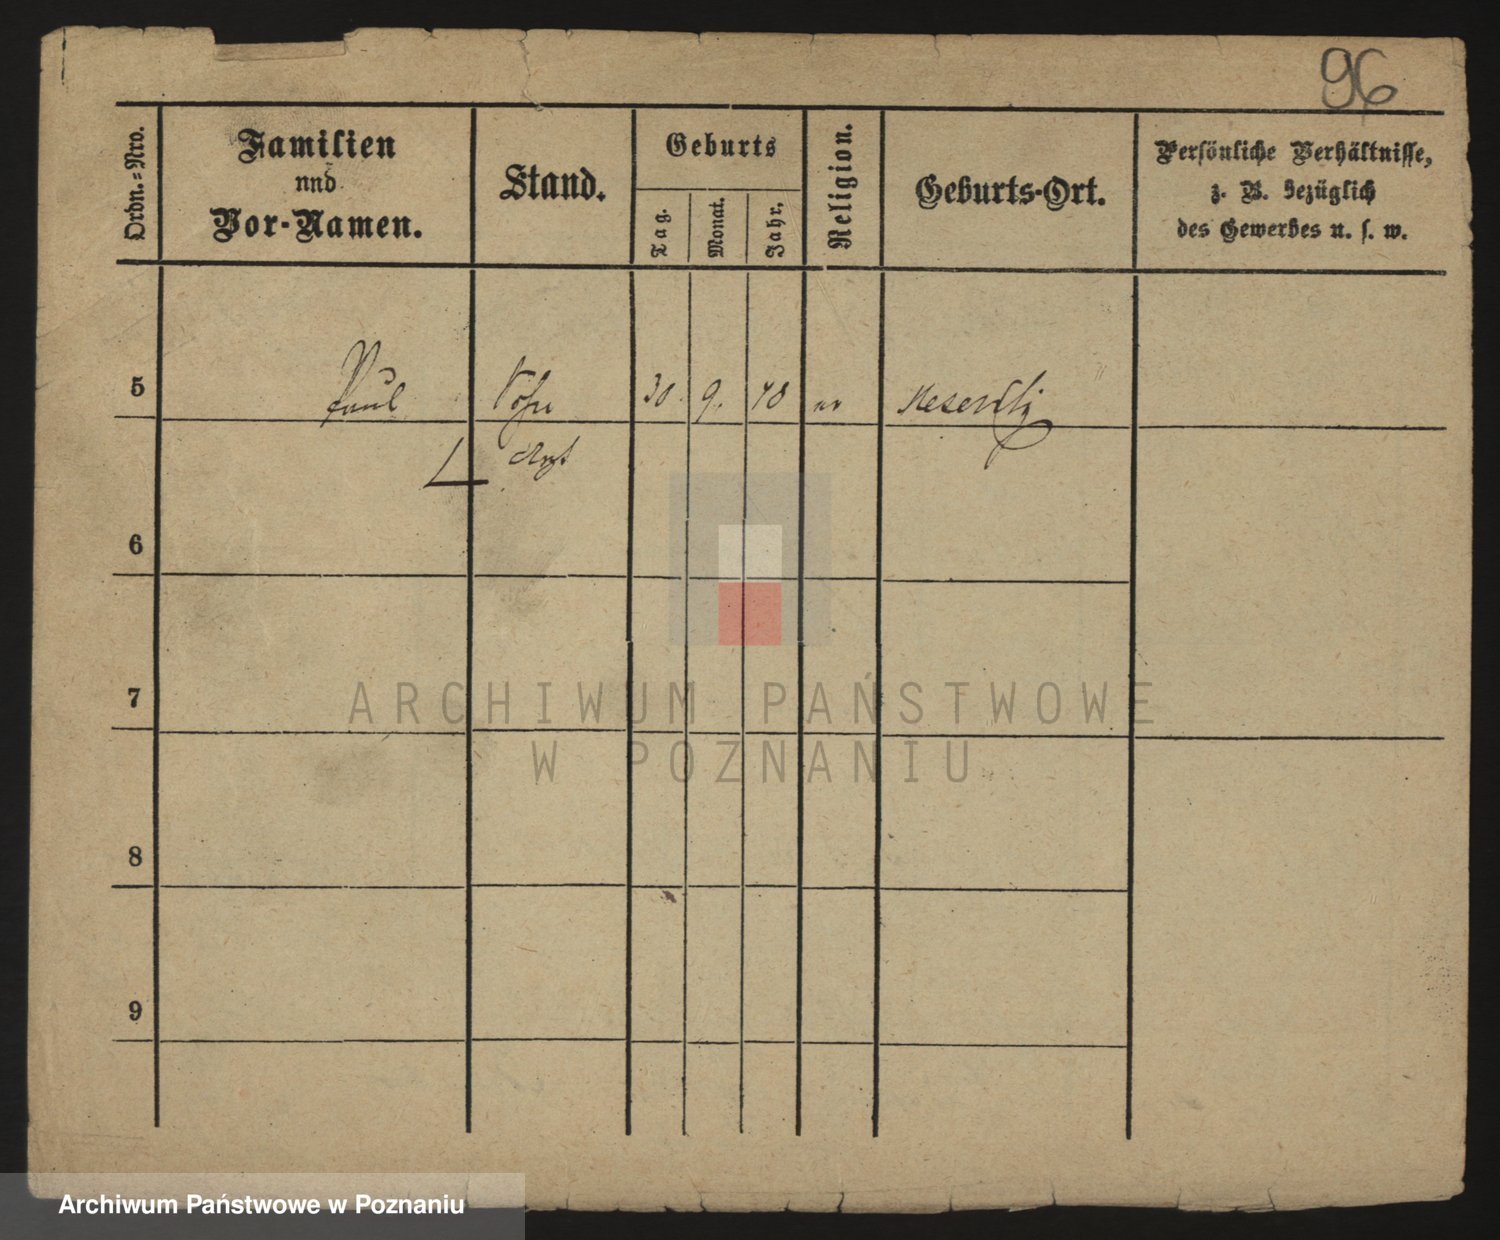 96
Ordn.-Nro.
Familien
und
Vor-Namen.
Stand.
Geburts
Tag.
Monat.
Jahr.
Religion.
Geburts-Ort.
Persönliche Verhältnisse,
z. B. bezüglich
des Gewerbes u. s. w.
5
Paul
30
9.
48
6
7
8
9
ARCHIWUM PAŃSTWOWE
W POZNANIU
Archiwum Państwowe w Poznaniu